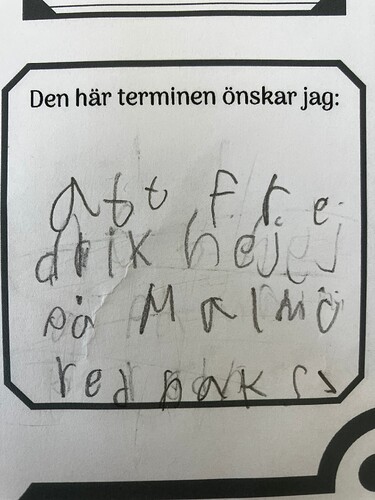 Den här terminen önskar jag:
att Fre
drik hejej
på Malmö
red